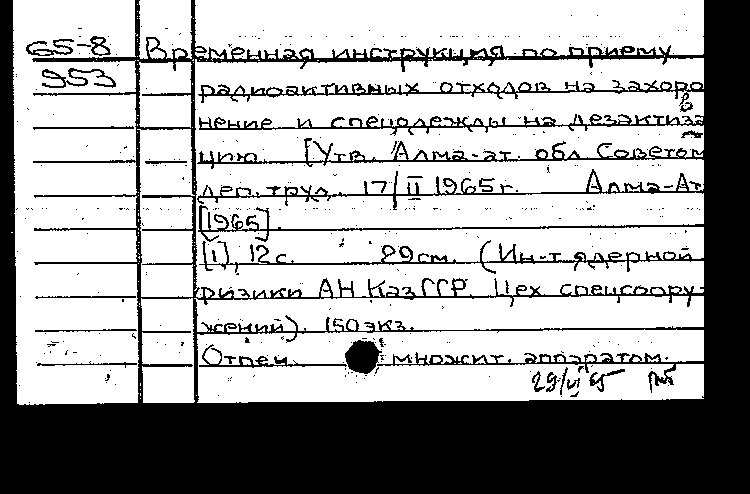 65-8 Временная инструкция по приему
953 радиоактивных отходов на захоро
нение и спецодежды на дезактива
цию. [Утв. Алма-ат. обл Советом
деп. труд. 17/II 1965г. Алма-Ат
[1965].
[1], 12с. 29см. (Ин-т ядерной
физики АН КазССР. Цех спецсоору-
жений). 150 экз.
Отпеч. множит. аппаратом.
29/VI 65